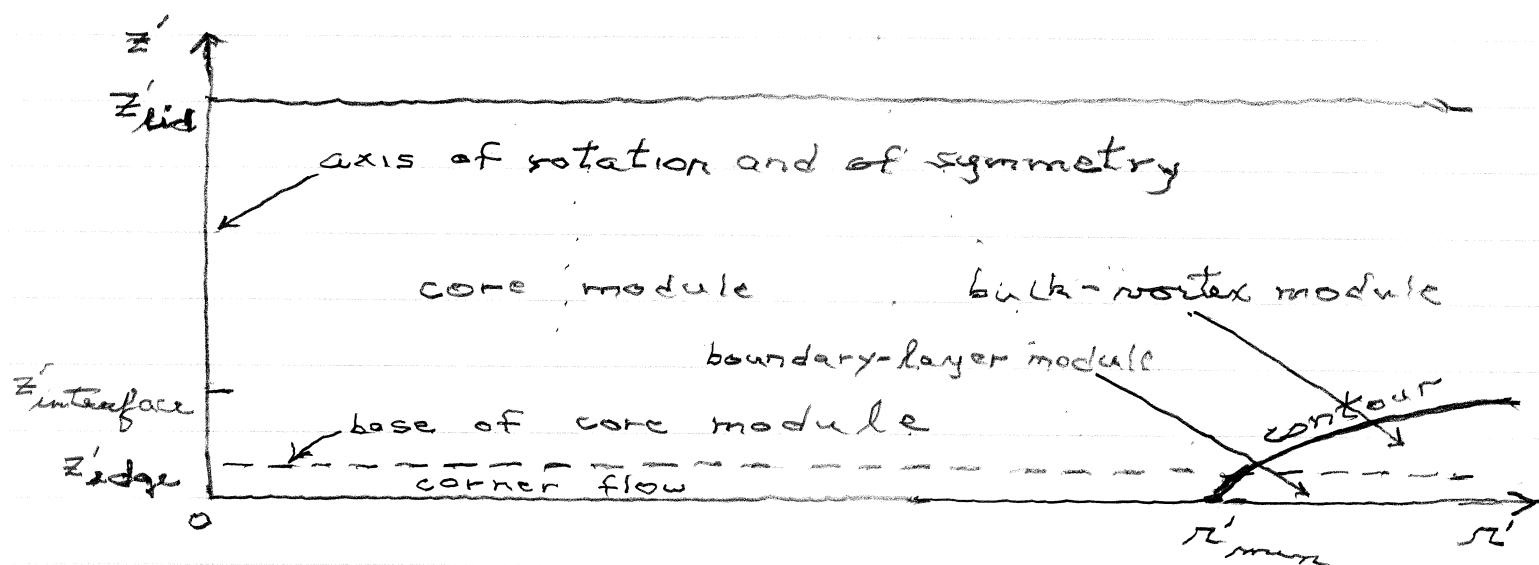 z'
z'lid
axis of rotation and of symmetry
core module
bulk-vortex module
boundary-layer module
z'interface
contour
base of core module
z'edge
corner flow
0
r'min
r'